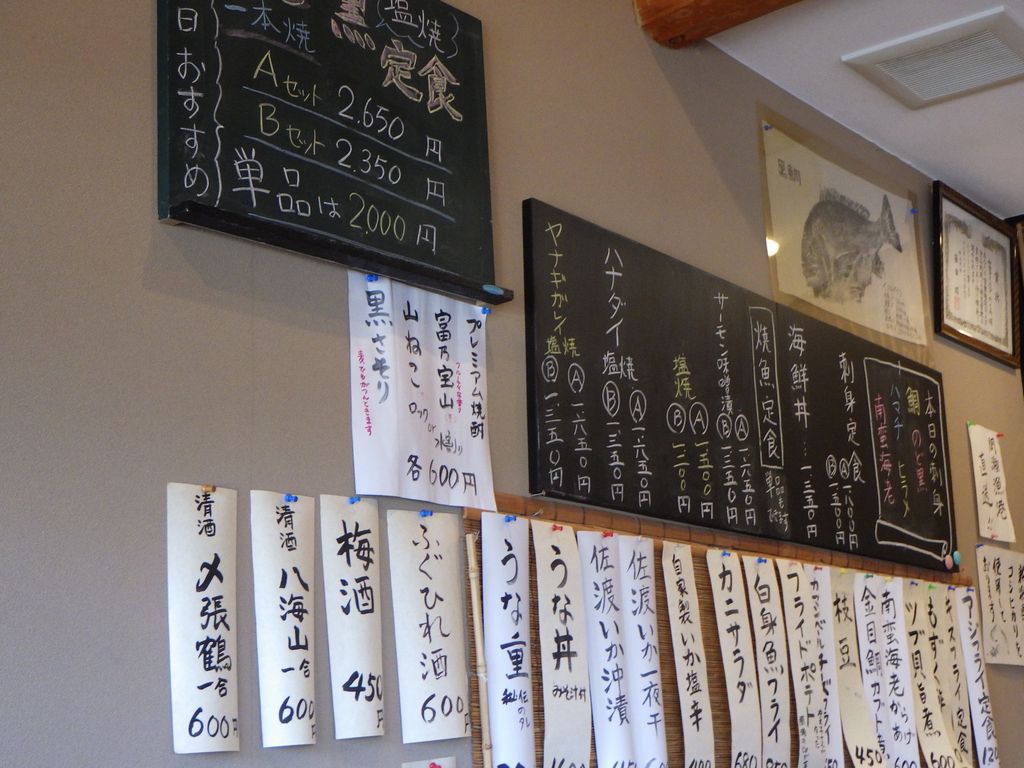 黒(塩焼)
一本焼
定食
Aセット 2,650円
Bセット 2,350円
単品は2,000円
日おすすめ
プレミアム焼酎
富乃宝山
山ねこ
ロック or 水割り
各600円
黒さそり
本日の刺身
鯛 のど黒
ハマチ ヒラメ
南蛮海老
刺身定食
海鮮丼…一三五〇円
焼魚定食
サーモン味噌漬
Ⓐ一六五〇円
Ⓑ一三五〇円
塩焼
Ⓐ一五〇〇円
Ⓑ一二〇〇円
ハナダイ塩焼
Ⓐ一六五〇円
Ⓑ一三五〇円
ヤナギガレイ塩焼
Ⓐ一六五〇円
Ⓑ一三五〇円
清酒 〆張鶴 一合 600円
清酒 八海山 一合 600
梅酒 450円
ふぐひれ酒 600円
うな重 秘伝のタレ
うな丼 みそ汁付
佐渡いか沖漬
佐渡いか一夜干
自家製いか塩辛
カニサラダ 680
白身魚フライ
フライドポテト
カマンベールチーズフライ
枝豆
金目鯛カブト煮 450
南蛮海老からあげ 600
ツブ貝旨煮 600
もずく酢
キスフライ定食
アジフライ定食
直送!!